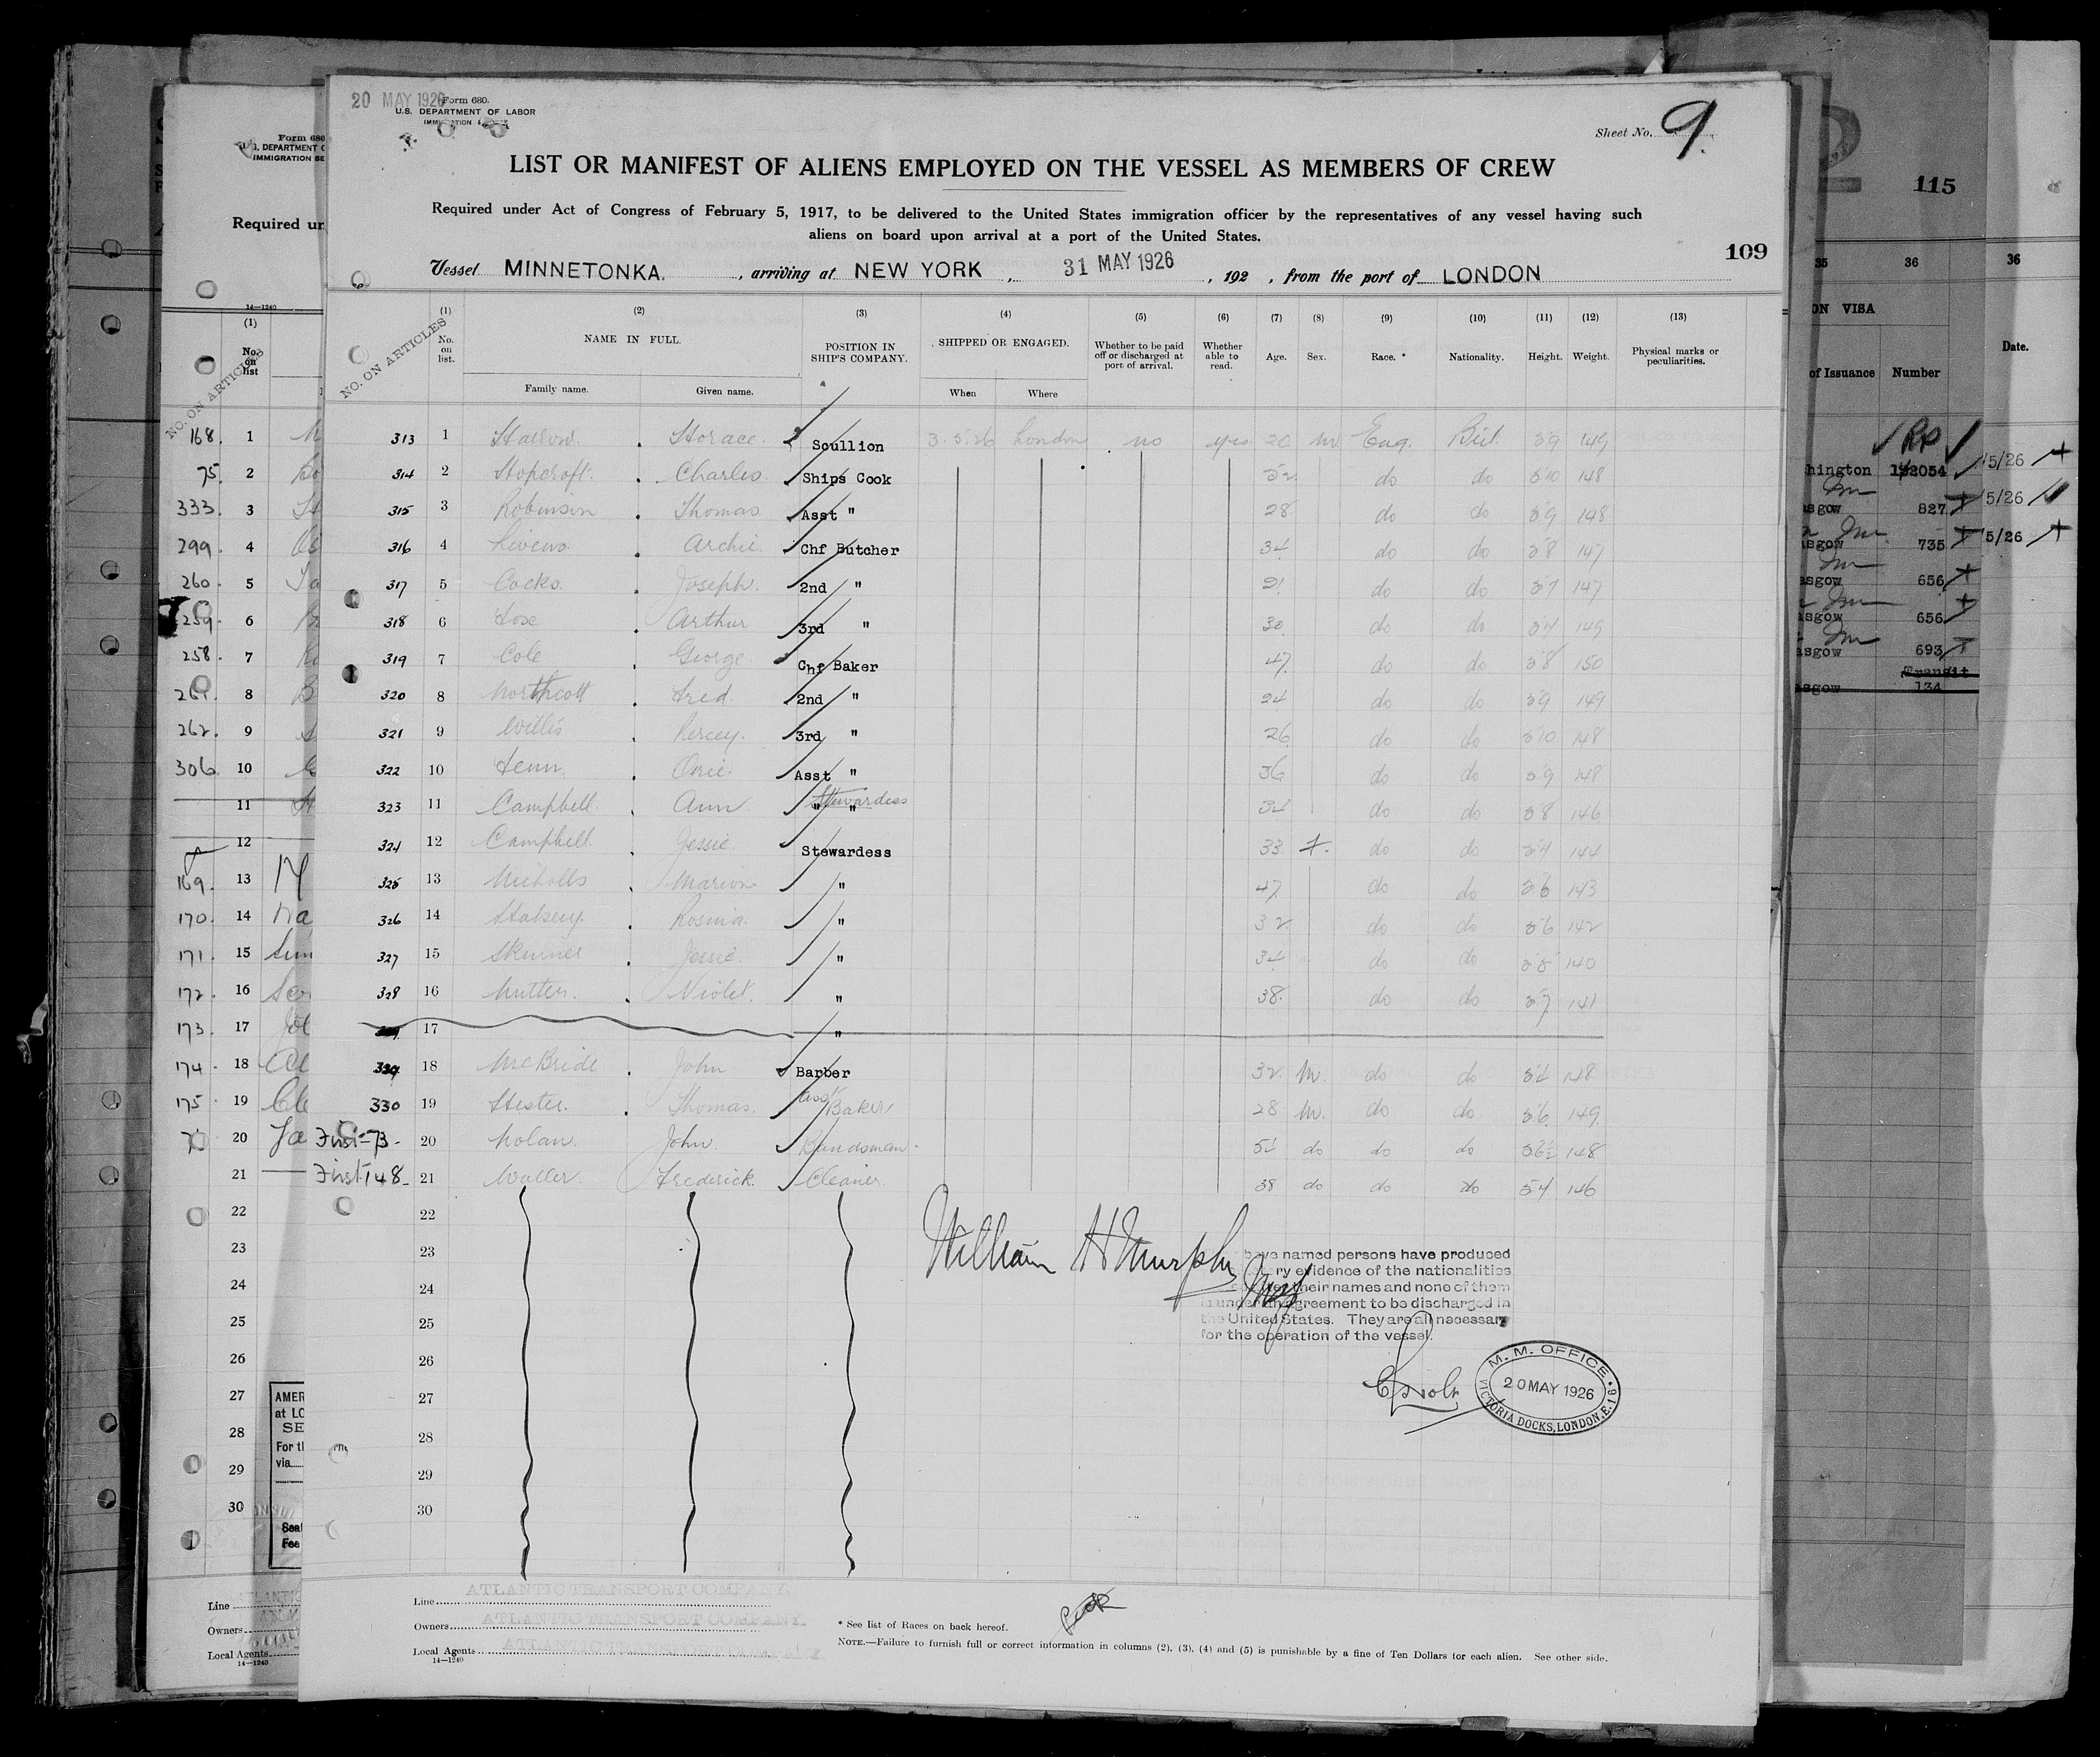 20 MAY 1926
Form 680.
U.S. DEPARTMENT OF LABOR
Sheet No. 9.
LIST OR MANIFEST OF ALIENS EMPLOYED ON THE VESSEL AS MEMBERS OF CREW
Required under Act of Congress of February 5, 1917, to be delivered to the United States immigration officer by the representatives of any vessel having such
aliens on board upon arrival at a port of the United States.
109
Vessel MINNETONKA. , arriving at NEW YORK , 31 MAY 1926 , 192 , from the port of LONDON
NO. ON ARTICLES
(1) (2) (3) (4) (5) (6) (7) (8) (9) (10) (11) (12) (13)
No. on list. NAME IN FULL. POSITION IN SHIP'S COMPANY. SHIPPED OR ENGAGED. Whether to be paid off or discharged at port of arrival. Whether able to read. Age. Sex. Race. * Nationality. Height. Weight. Physical marks or peculiarities.
Family name. Given name. When Where
313 1 Horace. Scullion 3.5.26 London no yes 20 m Eng. Brit. 5 9 149
314 2 Hopcroft. Charles. Ships Cook 52 do do 5 10 148
315 3 Robinson Thomas Asst " 28 do do 5 9 148
316 4 Archie. Chf Butcher 34 do do 5 8 147
317 5 Cocks. Joseph. 2nd " do do 5 7 147
318 6 Arthur 3rd " 30 do do 149
319 7 Cole George Chf Baker 47 do do 5 8 150
320 8 Northcott Fred. 2nd " 24 do do 5 9 149
321 9 Willis Percey. 3rd " 26 do do 5 10 148
322 10 Fenn. Asst " 36 do do 5 9 148
323 11 Campbell. Ann. Stewardess " " 34 do do 5 8 146
324 12 Campbell. Jessie. Stewardess 33 f. do do 144
325 13 Nicholls Marion " 47 do do 5 6 143
326 14 Rosina. " 32 do do 5 6 142
327 15 Skinner Jessie. " 34 do do 5 5 140
328 16 Nutter. Violet. " 38. do do 5 7 141
17 "
329 18 McBride John Barber 32 M. do do 148
330 19 Hester. Thomas. Asst Baker 28 M. do do 5 6 149
First-73- 20 Nolan. John. Bandsman. do do do 5 6½ 148
First 148- 21 Frederick. Cleaner. 38 do do do 5 4 146
22
23
24
25
26
27
28
29
30
William H Murphy
have named persons have produced
ry evidence of the nationalities
their names and none of them
is under an agreement to be discharged in
the United States. They are all necessary
for the operation of the vessel.
M. M. OFFICE
20 MAY 1926
VICTORIA DOCKS, LONDON, E.16
Line ATLANTIC TRANSPORT COMPANY.
Owners ATLANTIC TRANSPORT COMPANY.
Local Agents ATLANTIC TRANSPORT COMPANY.
14—1240
* See list of Races on back hereof.
NOTE.—Failure to furnish full or correct information in columns (2), (3), (4) and (5) is punishable by a fine of Ten Dollars for each alien. See other side.
Form 680
U.S. DEPARTMENT O
IMMIGRATION SE
Required un
14—1240
(1)
No. on list
NO. ON ARTICLES
168. 1
75. 2
333. 3
299. 4
260. 5
259. 6
258. 7
261. 8
262. 9
306. 10
11
12
169. 13
170. 14
171. 15
172. 16
173. 17
174. 18
175. 19
20
21
22
23
24
25
26
27
28
29
30
AMER
at LO
SE
For th
via
Seal
Fee
Line
Owners
Local Agents
14—1240
115
35 36 36
ON VISA
Date.
of Issuance Number
hington 122054 5/26
asgow 827 5/26
asgow 735 5/26
asgow 656
asgow 656
asgow 693
Transit
asgow 134